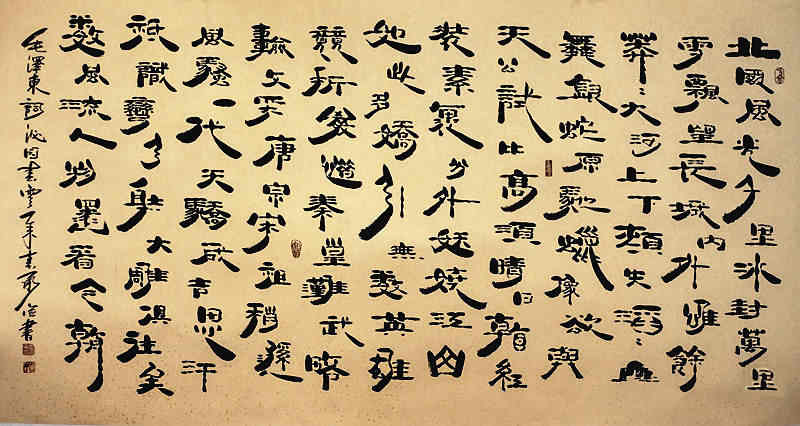 北國風光千里冰封萬里
雪飄望長城內外唯餘
莽〻大河上下頓失滔〻山
舞銀蛇原馳蠟像欲與
天公試比高須晴日看紅
裝素裹分外妖嬈江山
如此多嬌引無數英雄
競折腰惜秦皇漢武略
輸文采唐宗宋祖稍遜
風騷一代天驕成吉思汗
祇識彎弓射大雕俱往矣
數風流人物還看今朝
毛澤東詞沁園春雪